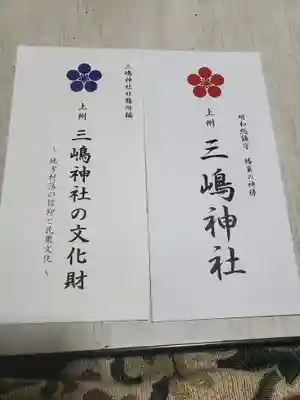 明和総鎮守　勝負の神様
上州
三嶋神社
三嶋神社社務所編
上州
三嶋神社の文化財
～地方村落の信仰と民衆文化～